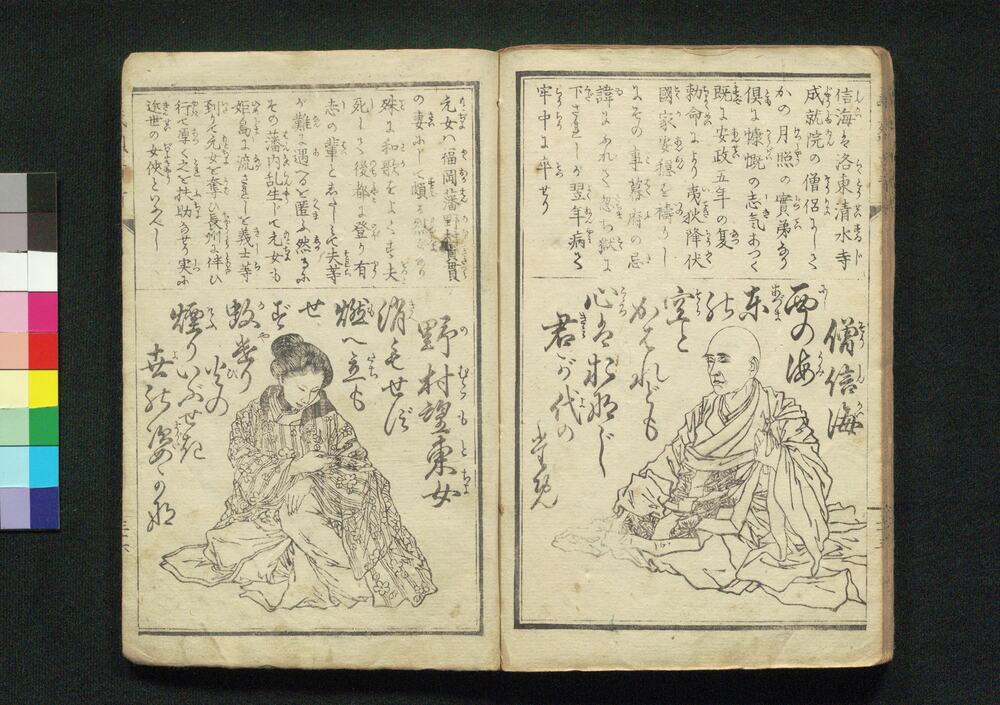 信海ハ洛東清水寺
成就院の僧侶にして
かの月照の實弟なり
倶に慷慨の志気あつく
既に安政五年の夏
勅命により夷狄降伏
國家安穏を禱りし
にその事幕府の忌
諱にふれて忽ち獄に
下されしが翌年病て
牢中に卒せり
僧信海
西の海
東の
空と
かはれども
心ハおなじ
君が代の
ため
元女ハ福岡藩野村貞貫
の妻にして頗る烈女なり
殊に和歌をよくす夫
死して後都に登り有
志の輩と交り夫等
が難に遇へるを匿ふ然るに
その藩内乱生じて元女も
姫島に流さる義士等
到りて元女を奪ひ長州に伴ひ
行て厚くこを扶助なせり実に
近世の女侠といふべし
野村望東女
消もせず
燃へ立も
せず
蚊遣り
火の
煙りいぶせき
世の姿かな